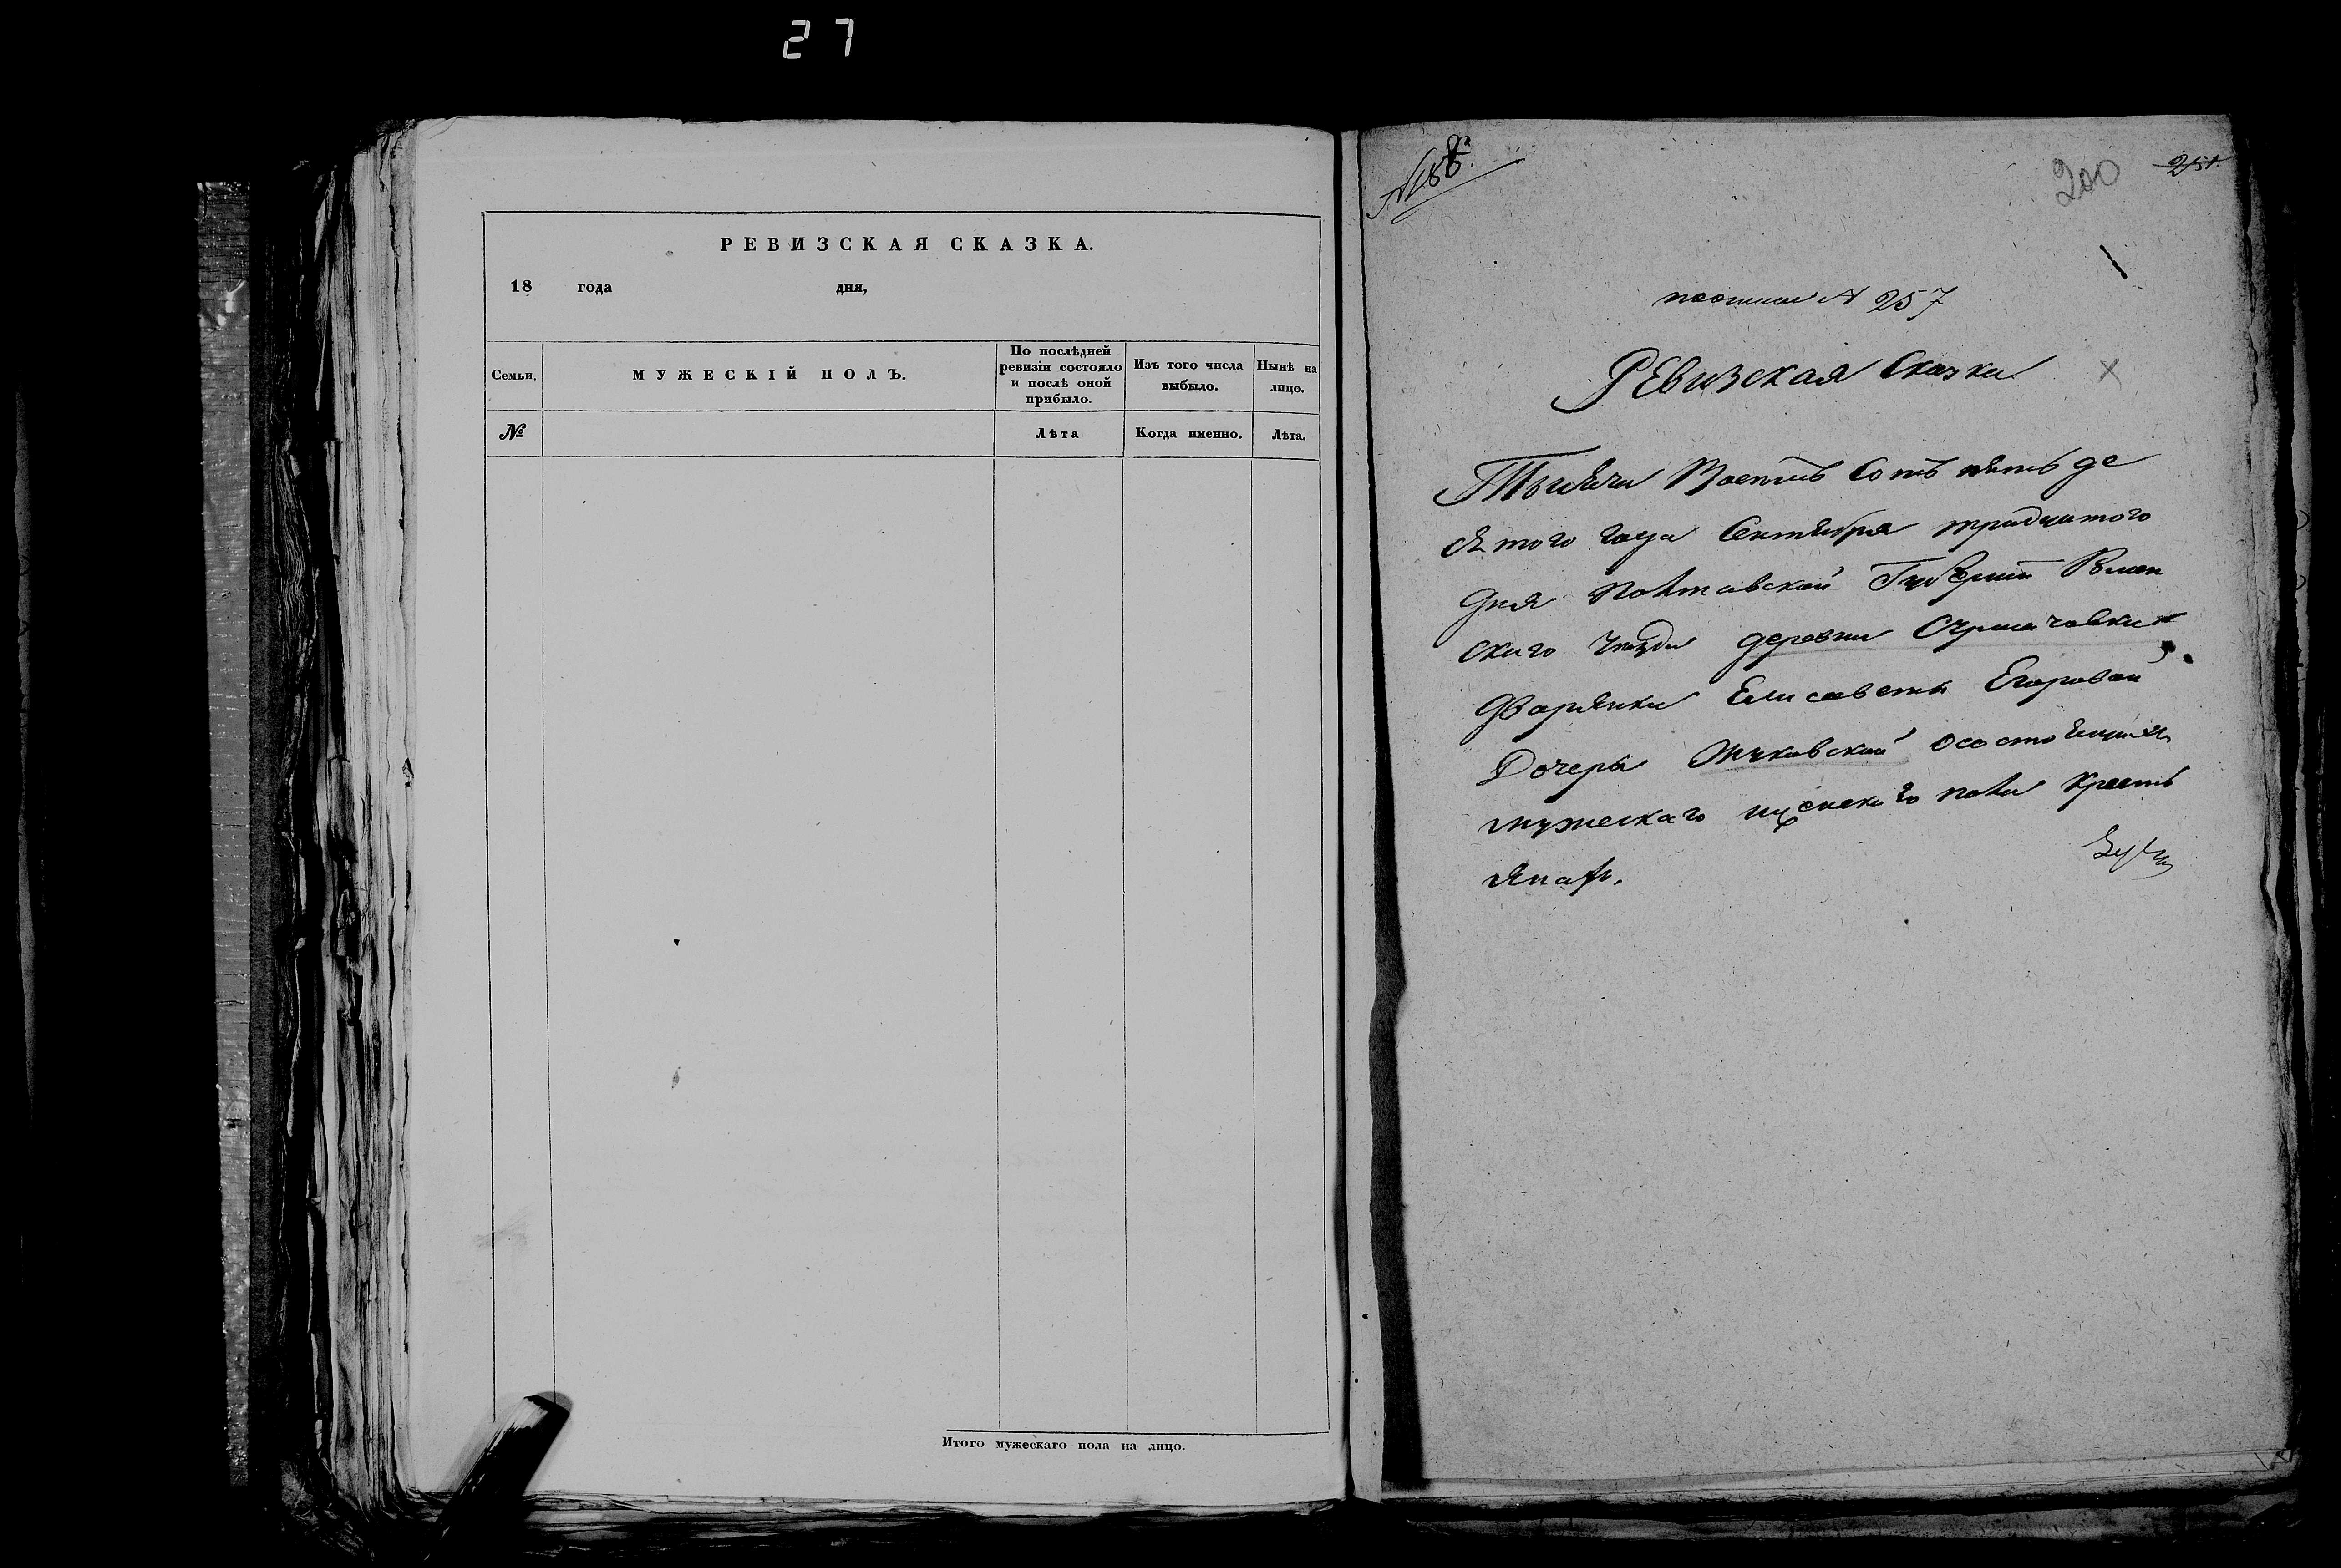 27
РЕВИЗСКАЯ СКАЗКА.
18 года дня,
Семьи.
МУЖЕСКІЙ ПОЛЪ.
По послѣдней ревизіи состояло и послѣ оной прибыло.
Изъ того числа выбыло.
Нынѣ на лицо.
№
Лѣта
Когда именно.
Лѣта.
Итого мужескаго пола на лицо.
200
251.
№ 257
РЕвизская Сказка
Тысяча Восемъ Сотъ пять де
сятого года Сентября тридцатого
Дня Полтавской Губернии Ромен
скаго уезда деревни
Дворянки Елисаветы Егоровой
Дочеры осостоящихъ
мужескаго иженскаго пола Кресть
янахъ.